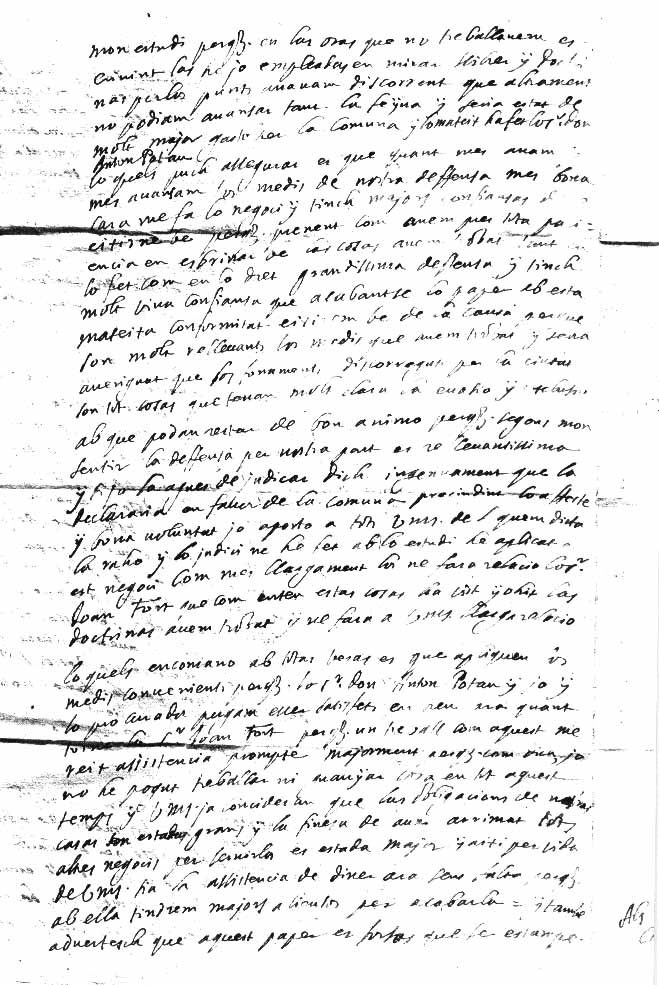 mon estudi perq̃. en las oras que no treballavem es
cuivint las he jo empleadas en mirar llibres y doct
nas per los punts anavam discorrent que altrament
no podiam avansar tant la feyna y seria estat de
molt major gasto per la Comuna y lo mateix ha fet lo sr. don
Anton Potau
lo quels puch assegurar es que quant mes anam
mes avansam los medis de nostra deffensa mes bona
cara me fa lo negoci y tinch majors confiansas de
exirne be perq̃. prenent com avem pres tota pa
encia en escriurer las cosas avem trobat tant
lo fet com en lo dret grandissima deffensa y tinch
molt viva confiansa que acabantse lo paper ab esta
mateixa conformitat exirem be de la causa perque
son molt rellevants los medis que avem trobat y seria
averiguat que los fonaments discorreguts per la ciutat
son tot cosas que tenan molt clara la evasio y
ab que podan restar de bon animo perq̃. segons mon
sentir la deffensa per nostra part es rellevantissima
y si jo la agues de judicar dich ingenuament que la
declararia en favor de la comuna precindint lo affecte
y bona voluntat jo aporto a tots Vms. del quem dicta
la raho y lo judici ne he fet ab lo estudi he aplicat a
est negoci com mes llargament los ne fara relacio lo sr.
Joan Fort que com enten estas cosas ha vist y ohit las
doctrinas avem trobat y ne fara a Vms. llarga relacio
lo quels encomano ab totas veras es que apliquen los
medis convenients perq̃. lo sr. don Anton Potau y jo y
lo procurador pugam esser satisfets en
lo sr. Joan Fort perq̃. un treball com aquest me
reix assistencia prompte majorment perq̃. com dich jo
no he pogut treballar ni manejar cosa en tot aquest
temps y Vms. ja concideran que las obligacions de nostras
casas son estadas grans y la finesa de aver arrimat tots
altres negocis per servirlos es estada major y axi per vida
de Vms. sia la assistencia de diner ara sens falta perq̃.
ab ella tindrem majors alientos per acabarla = y tambe
advertesch que aquest paper es forsos que se estampe.